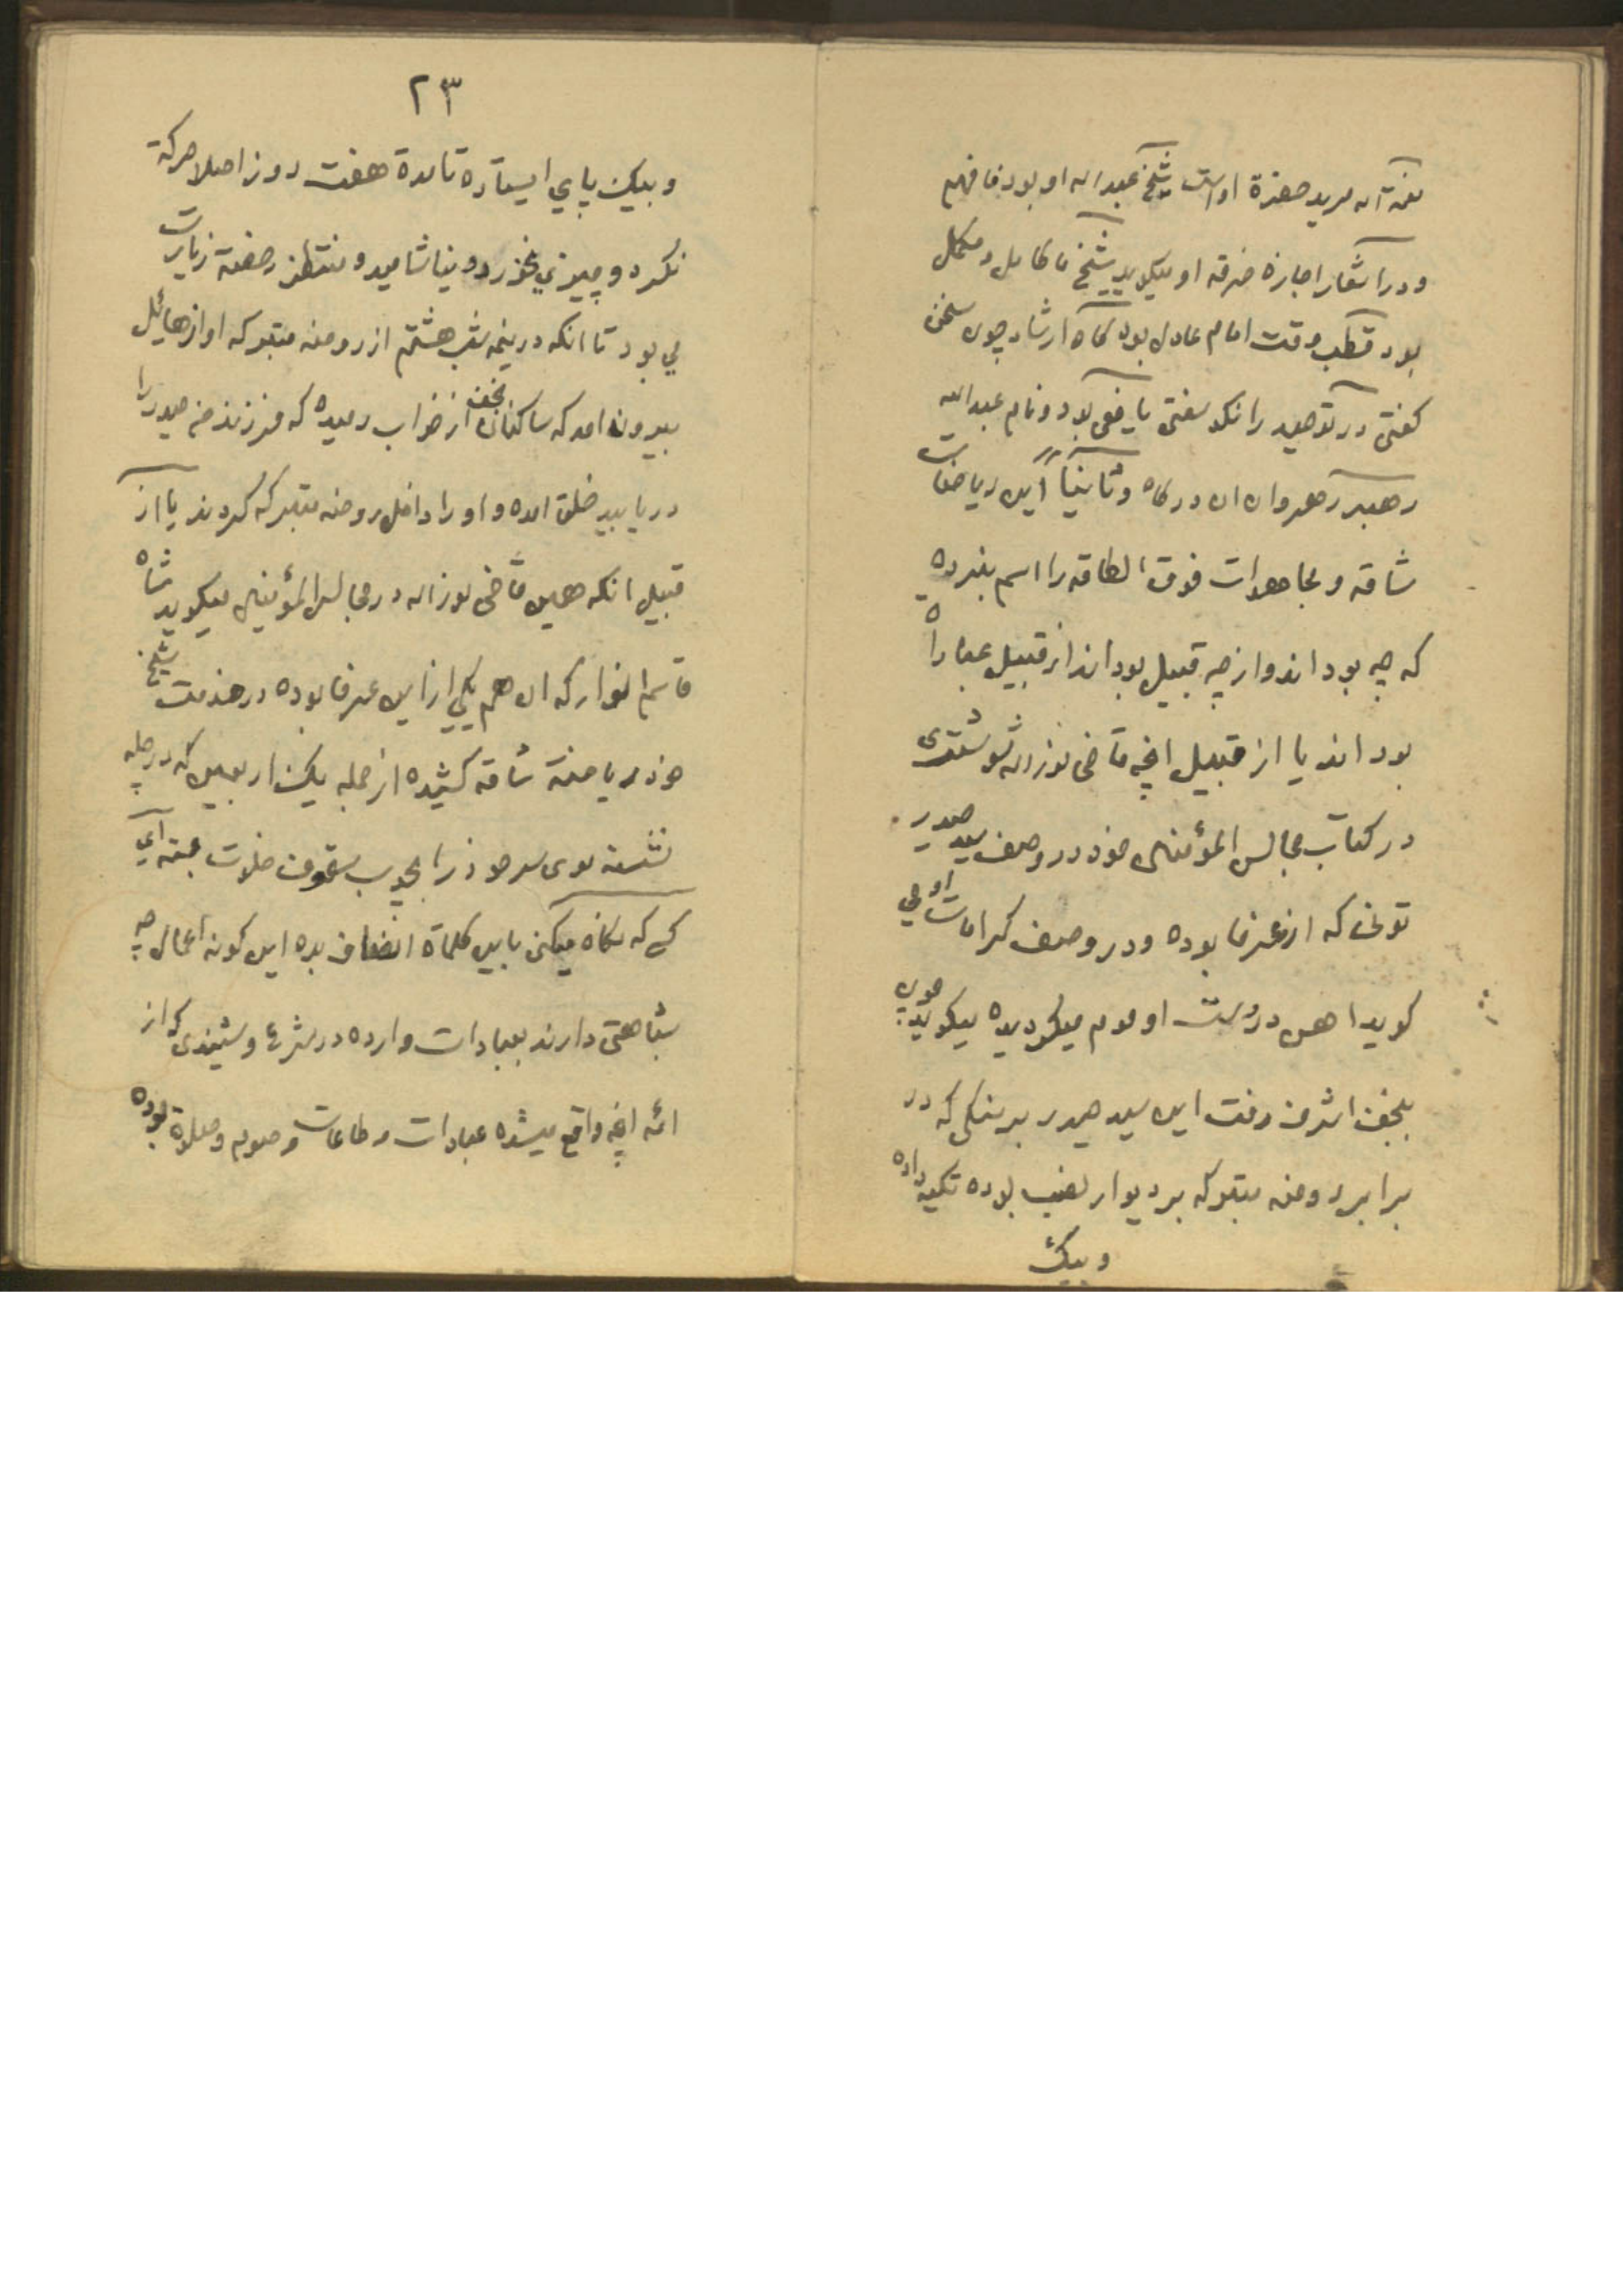 نعمة اله مرید حضرة اوست شیخ عبد اله او بود فافهم
و در اشعار اجازه خرقه او میکوید شیخ ما کامل و مکمل
بود قطب وقت امام عادل بود کاه ارشاد چون سخن
کفتی در توحید را نکو سفتی یافعی بود و نام عبد الله
رهبر رهروان ان درکاه و ثانیاً این ریاضات
شاقه و مجاهدات فوق الطاقه را اسم نبرده
که چه بود اند و از چه قبیل بود اند از قبیل عبادا
بود اند یا از قبیل انچه قاضی نور اله شوشتری
در کتاب مجالس المؤمنین خود در وصف سید حیدر
تونی که از عرفا بوده و در وصف کرامات او می
کوید اهن در دست او موم میکردیده میکوید چون
بنجف اشرف رفت این سید حیدر بر سنکی که در
برابر روضه متبرکه بر دیوار نصب بوده تکیه داده
و بیک
٢٣
و بیک پای ایستاده تا مدة هفت روز اصلا حرکة
نکرد و چیزی نخورد و نیاشامید و منتظر رخصة زیارت
می بود تا انکه در نیمه شب هشتم از روضه متبرکه اواز هائل
بیرون امد که ساکنان نجف از خواب رمیده که فرزندم حیدر را
دریابید خلق امده و او را داخل روضه متبرکه کردند یا از
قبیل انکه همین قاضی نور اله در مجالس المؤمنین میکوید شاه
قاسم انوار که ان هم یکی از این عرفا بوده در خدمت شیخ
خود ریاضة شاقه کشیده از جمله یک اربعین که در چله
نشسته موی سر خود را بچوب سقوف خلوت بسته ای
کسی که نکاه میکنی باین کلماة انصاف بده این کونه اعمال چه
شباهتی دارند بعبادات وارده در شرع و شنیدی که از
ائمه انچه واقع میشده عبادات و طاعات و صوم و صلوة بوده